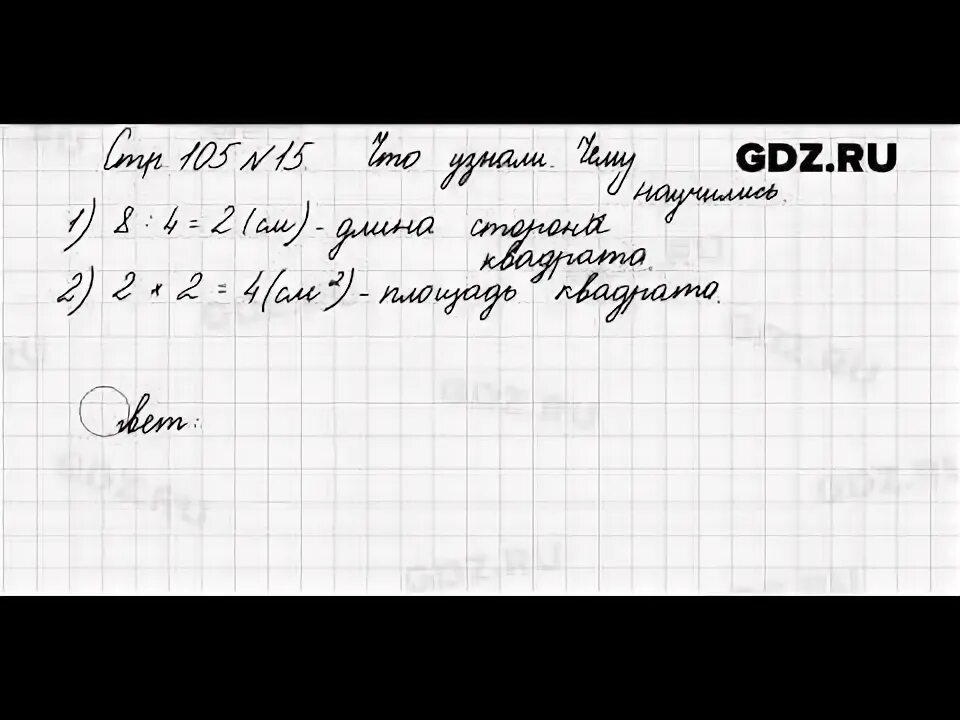 Стр. 105 №15. Что узнали. Чему научились.
GDZ.RU
1) 8 : 4 = 2 (см) - длина стороны квадрата.
2) 2 × 2 = 4 (см²) - площадь квадрата.
Ответ: